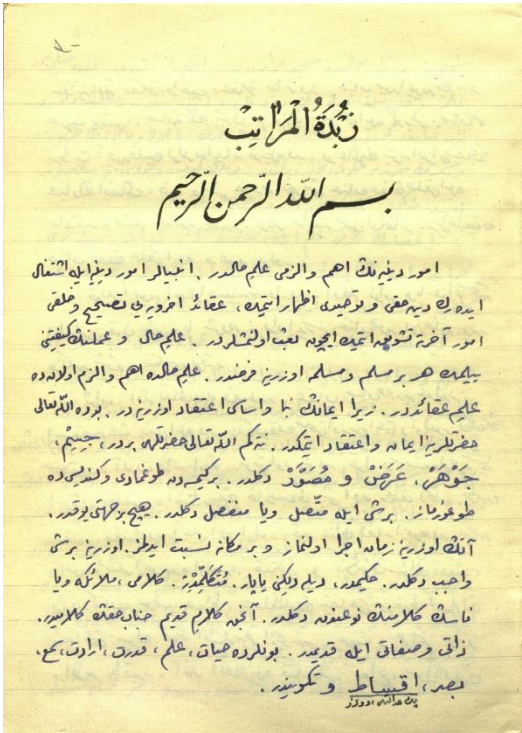 زُبْدَةُ الْمَرَاتِبْ
بسم الله الرّحمن الرّحيم
امور دينيه‌نك اهم والزمى علم حالدر . انبيالر امور دينيه ايله اشتغال
ايده‌رك دين حقى و توحيدى اظهار ايتمك ، عقائد اخرويه يى تصحيح و خلقى
امور آخرته تشويق ايتمك ايچون بعث اولنمشلردر . علم حال و عملنك كيفيتنى
بيلمك هر بر مسلم و مسلمه اوزرينه فرضدر . علم حالده اهم والزم اولان ده
علم عقائددر . زيرا ايمانك بنا واساسى اعتقاد اوزرينه در . بوده الله تعالى
حضرتلرينه ايمان واعتقاد ايتمكدر . نته كم الله تعالى حضرتلرى بردر ، جِسِمْ ،
جَوْهَرْ ، عَرَضْ و مُصَوَّرْ دكلدر . بر كيمسه دن طوغمادى و كنديسى ده
طوغورماز . بر شى ايله متّصل ويا منفصل دكلدر . هيچ بر جهتى يوقدر .
آنك اوزرينه زمان اجرا اولنماز و بر مكانه نسبت ايدلمز . اوزرينه بر شى
واجب دكلدر . حكيمدر ، ديله ديكنى ياپار . مُتَكَلِّمْدِرْ . كلامى ، ملائكه ويا
ناسك كلامنك نوعندن دكلدر . آنجق كلام قديم جناب حقك كلاميدر .
ذاتى وصفاتى ايله قديمدر . بونلرده حيات ، علم ، قدرت ، ارادت ، سمع ،
بصر ، و تكويندر .